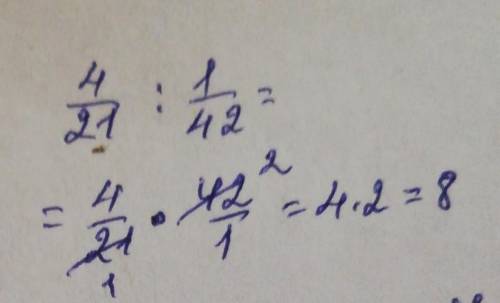 4/21 : 1/42 =
= 4/21 1 · 42 2/1 = 4·2 = 8